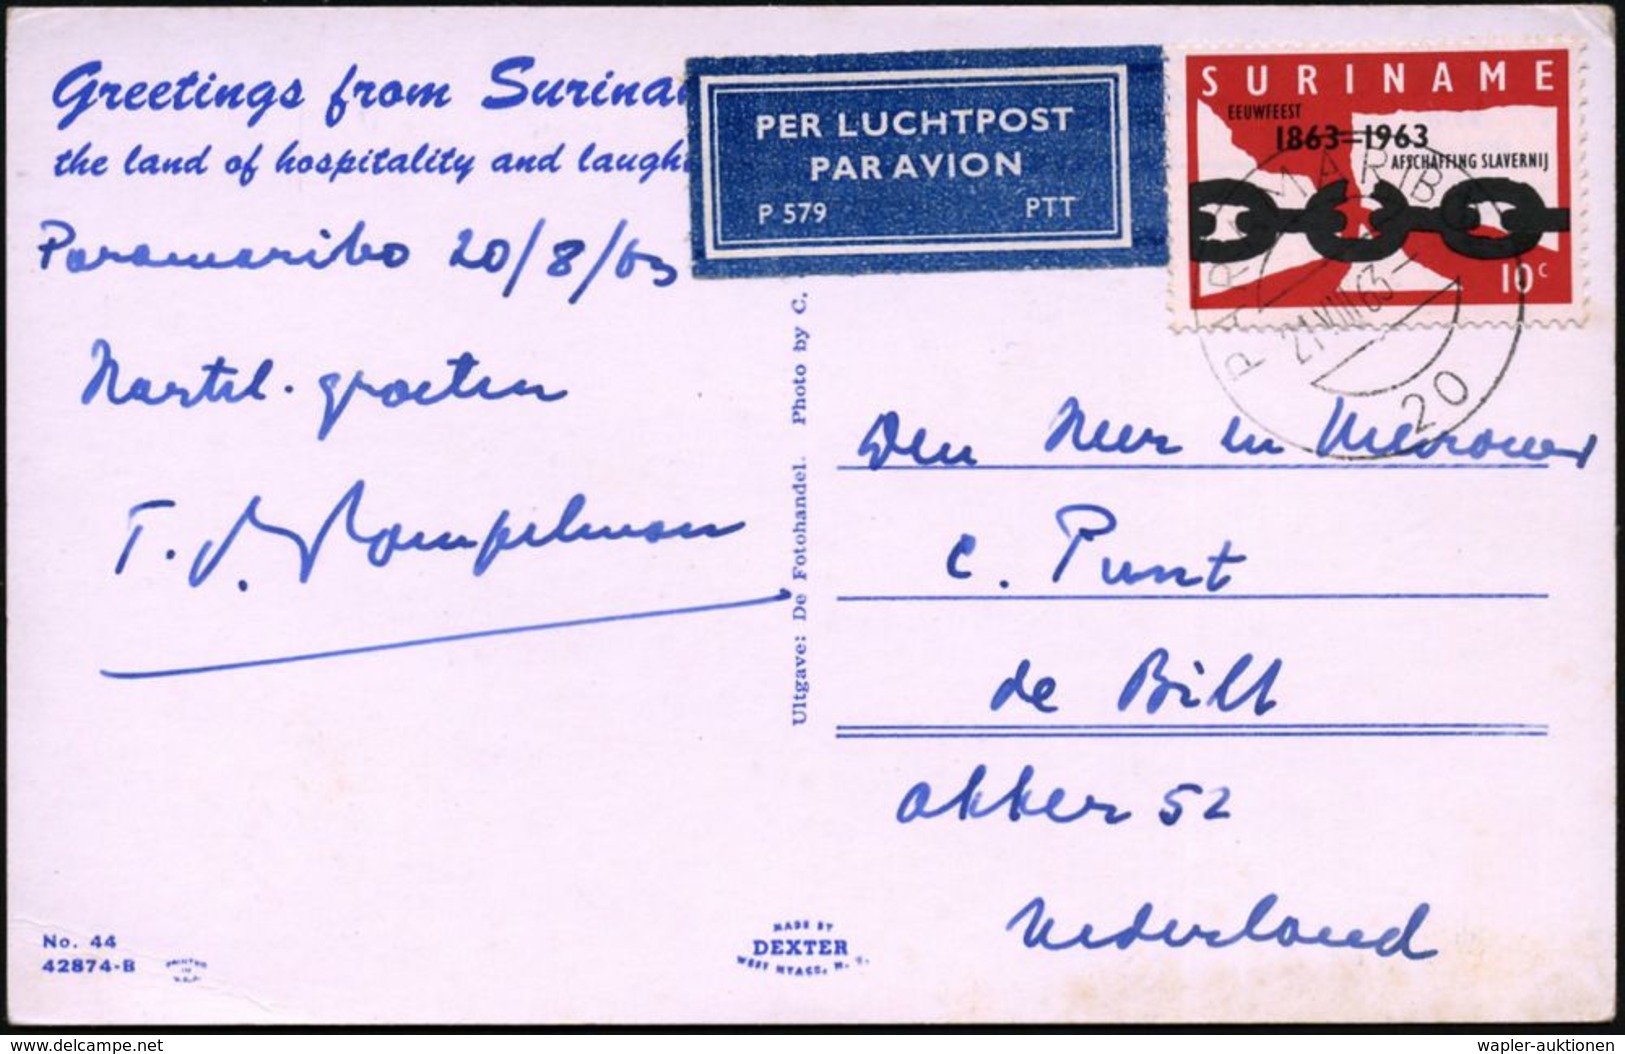 Greetings from Surina
the land of hospitality and laugh
PER LUCHTPOST
PAR AVION
P 579 PTT
SURINAME
EEUWFEEST
1863-1963
AFSCHAFFING SLAVERNIJ
10c
PARAMARIBO
21.VIII.63-
20
Paramaribo 20/8/63
Hartel. groeten
Uitgave: De Fotohandel. Photo by C.
Den Heer en Mevrouw
C. Punt
de Bilt
akker 52
Nederland
No. 44
42874-B
PRINTED
IN
U.S.A.
MADE BY
DEXTER
WEST NYACK, N. Y.
delcampe.net
wapler-auktionen